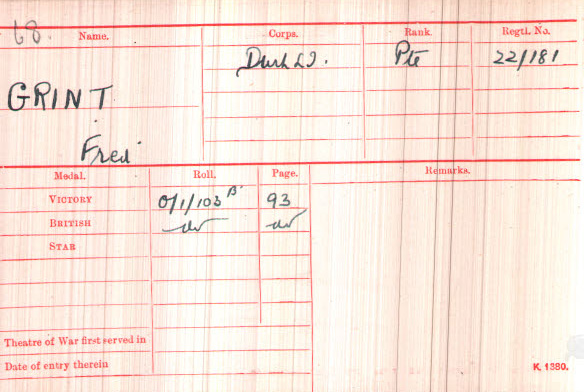 68.
Name. Corps. Rank. Regtl. No.
GRINT Durh LI. Pte 22/181
Fred
Medal. Roll. Page. Remarks.
VICTORY O/1/103 B 93
BRITISH do do
STAR
Theatre of War first served in
Date of entry therein
K. 1380.